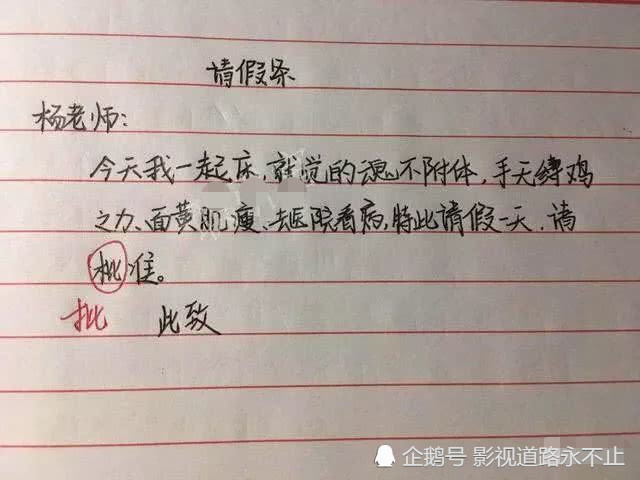 请假条
杨老师:
今天我一起床,就觉的魂不附体,手无缚鸡
之力、面黄肌瘦、去医院看病,特此请假一天.请
枇准。
批 此致
企鹅号 影视道路永不止